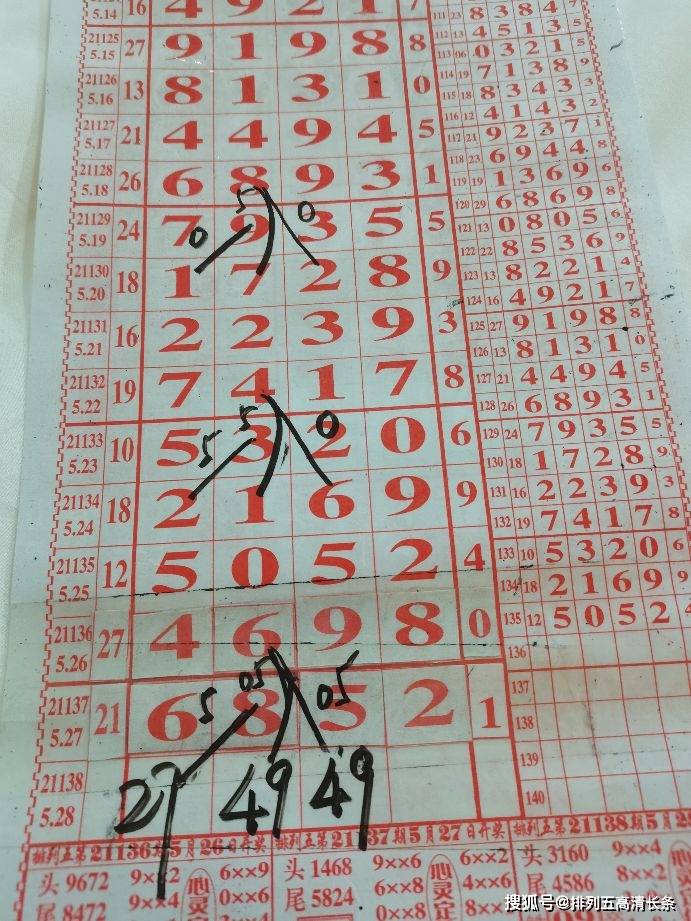 5.14 16 4 9 2 1 7
21125 5.15 27 9 1 9 8 8
21126 5.16 13 8 1 3 1 0
21127 5.17 21 4 4 9 4 5
21128 5.18 26 6 8 9 3 1
5 0 0
21129 5.19 24 7 9 3 5 5
21130 5.20 18 1 7 2 8 9
21131 5.21 16 2 2 3 9 3
21132 5.22 19 7 4 1 7 8
5 5 0
21133 5.23 10 5 3 2 0 6
21134 5.24 18 2 1 6 9 9
21135 5.25 12 5 0 5 2 4
21136 5.26 27 4 6 9 8 0
5 05 05
21137 5.27 21 6 8 5 2 1
21138 5.28
27 49 49
111 23 8 3 8 4 7
112 13 4 5 1 3 5
113 06 0 3 2 1 5
114 19 7 1 3 8 9
115 18 8 3 4 3 3
116 12 4 1 4 3 2
117 21 9 2 3 7 1
118 23 6 9 4 4 8
119 19 1 3 6 9 6
120 29 6 8 6 9 8
121 13 0 8 0 5 6
122 22 8 5 3 6 9
123 13 8 2 2 1 4
124 16 4 9 2 1 7
125 27 9 1 9 8 8
126 13 8 1 3 1 0
127 21 4 4 9 4 5
128 26 6 8 9 3 1
129 24 7 9 3 5 5
130 18 1 7 2 8 9
131 16 2 2 3 9 3
132 19 7 4 1 7 8
133 10 5 3 2 0 6
134 18 2 1 6 9 9
135 12 5 0 5 2 4
136
137
138
139
140
排列五第21136期5月26日开奖
头 9672 6××9
尾 8472 9××4 0××6
心灵
排列五第21137期5月27日开奖
头 1468 9××6 6××2
尾 5824 6××8 4××6
心灵
排列五第21138期5月28
头 3160 9××4
尾 4586 8××2
心灵
搜狐号@排列五高清长条